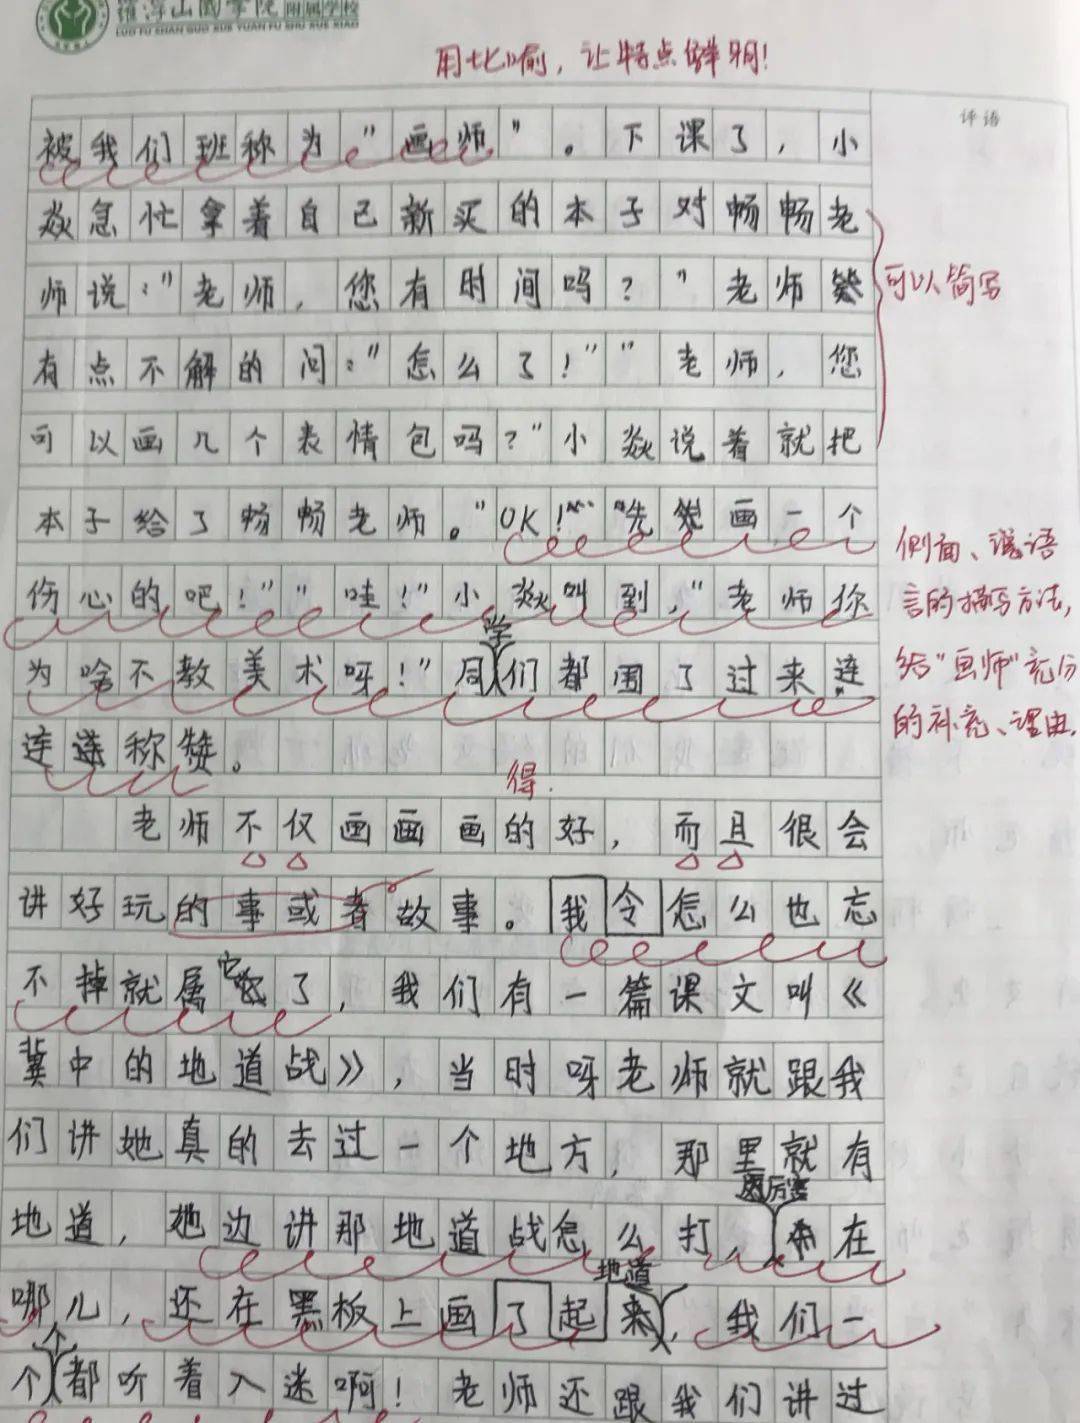 羅浮山國學院附属学校
LUO FU SHAN GUO XUE YUAN FU SHU XUE XIAO
用比喻，让特点鲜明！
评语
被我们班称为"画师"。下课了，小
焱急忙拿着自己新买的本子对畅畅老
师说："老师，您有时间吗？"老师
可以简写
有点不解的问："怎么了！""老师，您
可以画几个表情包吗？"小焱说着就把
本子给了畅畅老师。"OK！""先画一个
侧面、语
伤心的吧！""哇！"小焱叫到，"老师你
言的描写方法，
学
为啥不教美术呀！"同们都围了过来连
给"画师"充分
的补充、理由.
连称赞。
得.
老师不仅画画画的好，而且很会
讲好玩的事或者故事。我令怎么也忘
它
不掉就属了，我们有一篇课文叫《
冀中的地道战》，当时呀老师就跟我
们讲她真的去过一个地方，那里就有
厉害
地道，她边讲那地道战怎么打，在
地道
哪儿，还在黑板上画了起来，我们一
个
个都听着入迷啊！老师还跟我们讲过